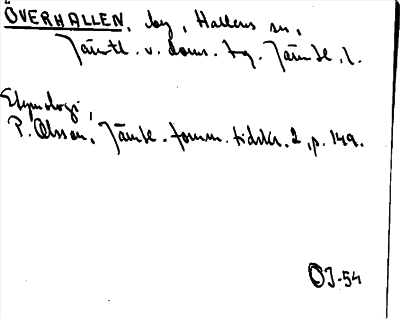 ÖVERHALLEN, by, Hallens sn,
Jämtl. v. doms. tg. Jämtl. l.
Etymologi,
P. Olsson, Jämtl. fornm. tidskr. 2, p. 149.
OJ-54